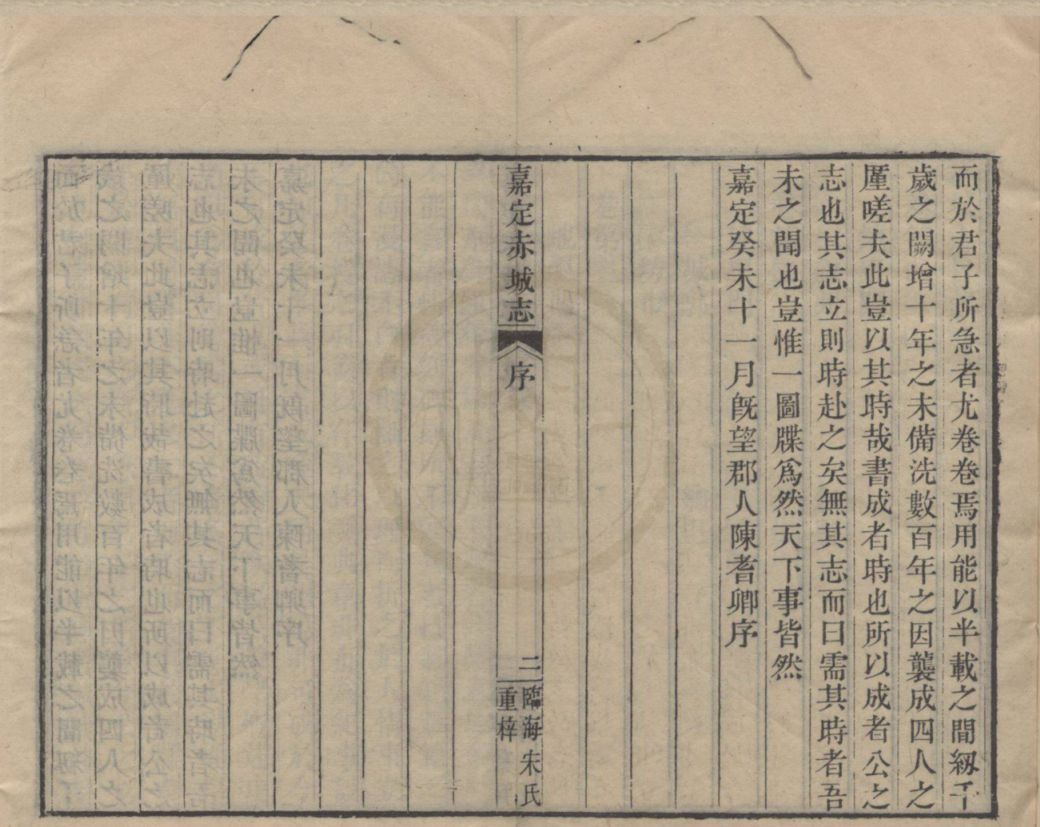 而於君子所急者尤卷卷焉用能以半載之間紉千
歲之闕增十年之未備洗數百年之因襲成四人之
厪嗟夫此豈以其時哉書成者時也所以成者公之
志也其志立則時赴之矣無其志而曰需其時者吾
未之聞也豈惟一圖牒爲然天下事皆然
嘉定癸未十一月旣望郡人陳耆卿序
嘉定赤城志
序
二
臨海朱氏
重梓